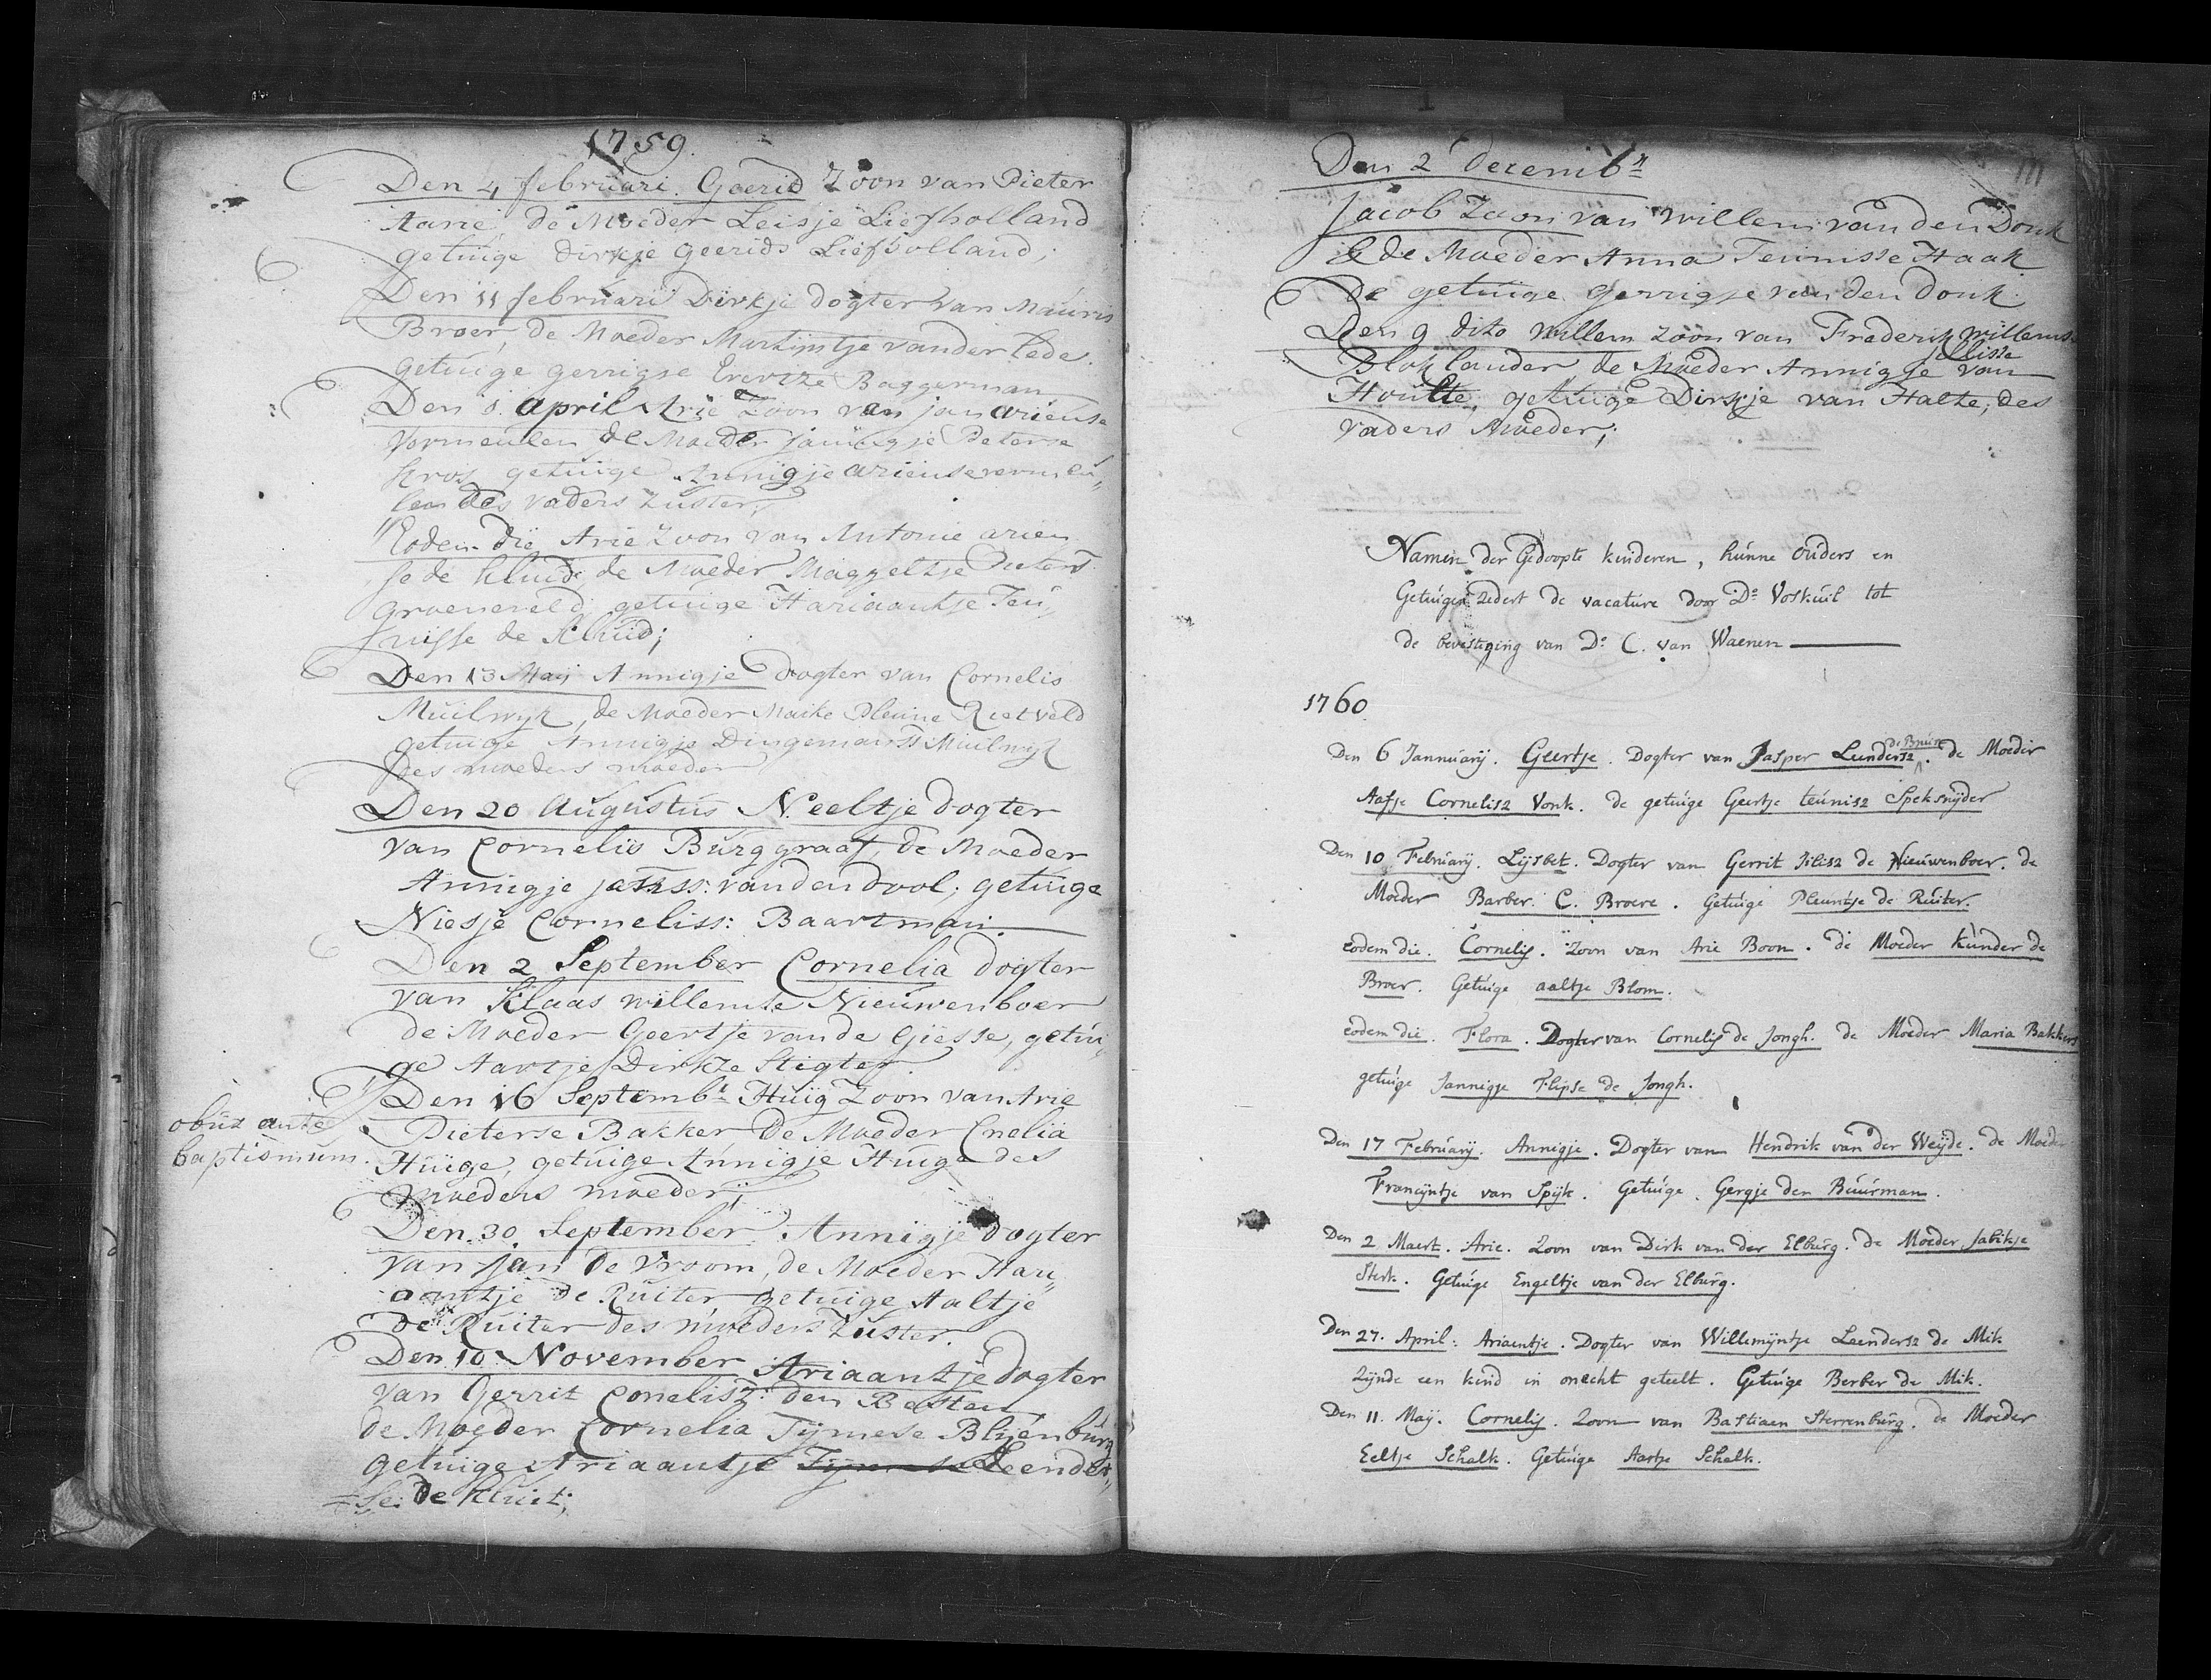 1759.
Den 4 februari. Geerid Zoon van Pieter
Aarie, de Moeder Leisje Liefholland
getuige Dirkje Geerids Liefholland;
Den 11 februari Dirkje dogter van Mauris
Broer, de Moeder Martijntje vander Lede.
getuige gerrigje Evertze Baggerman
Den 8. April Arie Zoon van jan ariense
Vermeulen de Moeder januigje Peterse
kros getuige Annigje ariense vermeu„
len des vaders Zuster,
Eodem die Arie Zoon van Antonie arien
se de kluid, de Moeder Maggeltje Pieters
groeneveld, getuige Hariaantje Teu„
nisse de Kluid;
Den 13 Maij Annigje dogter van Cornelis
Muilwyk, de Moeder Maike Pleune Rietveld
getuige Annigje Dingemanss Muilwyk
des moeders moeder
Den 20 Augustus Neeltje dogter
van Cornelis Burggraaf, de Moeder
Annigje janss: vanden dool; getuige
Niesje Corneliss: Baartman.
Den 2 September Cornelia dogter
van Klaas willemse Nieuwenboer
de Moeder Geertje van de Giesse, getui„
ge Aartje Dirkze Stigter.
Den 16 Septembr. Huig Zoon van Arie
obiit ante
baptismum.
Pieterse Bakker, De Moeder Cnelia
Huige, getuige Annigje Huige des
moeders moeder;
Den 30 September Annigje dogter
van Jan de Vroom, de Moeder Hari„
aantje de Ruiter getuige Aaltje
de Ruiter des moeders Zuster.
Den 10 November Ariaantje dogter
van Gerrit Cornelisz: den Besten
de Moeder Cornelia Tijmese Blijenburg
getuige Ariaantje Leender„
se: de Kluit;
Den 2 decembr
111
Jacob Zoon van willem van den Donk
de Moeder Anna Teunisse Haak
De getuige gerrigje van den donk
Den 9 dito willem zoon van Frederik willems.
Bloklander de Moeder Annigje Jillisse van
Houtte, getuige Dirkje van Halte, des
vaders Moeder;
Namen der Gedoopte kinderen, hunne ouders en
Getuigen Zedert de vacature door Ds Voskuil tot
de bevestiging van Ds. C. van Waenen
1760
Den 6 Jannuarij. Geertje. Dogter van Jasper Lendersz de Bruin. de Moeder
Aafje Cornelisz Vonk. de getuige Geertje teunisz Speksnijder
Den 10 Februarij. Lijsbet. Dogter van Gerrit Jilisz de Nieuwenboer. de
Moeder Barber. C. Broere. Getuige Pleuntje de Ruiter.
eodem die. Cornelis. Zoon van Arie Boon. de Moeder Kunder de
Broer. Getuige aaltje Blom.
eodem die. Flora. Dogter van Cornelis de Jongh. de Moeder Maria Bakkers
getuige Jannigje Flipse de Jongh.
Den 17 Februarij. Annigje. Dogter van Hendrik van der Weijde. de Moeder
Francijntje van Spijk. Getuige. Gergje den Buurman.
Den 2 Maert. Arie. Zoon van Dirk van der Elburg. de Moeder Jabikje
Sterk. Getuige Engeltje van der Elburg.
Den 27. April. Ariaentje. Dogter van Willemijntje Leendersz de Mik
Zijnde een kind in onecht geteelt. Getuige Berber de Mik.
Den 11. Maij. Cornelis. Zoon van Bastiaen Sterrenburg. de Moeder
Eeltje Schalk. Getuige Aartje Schalk.